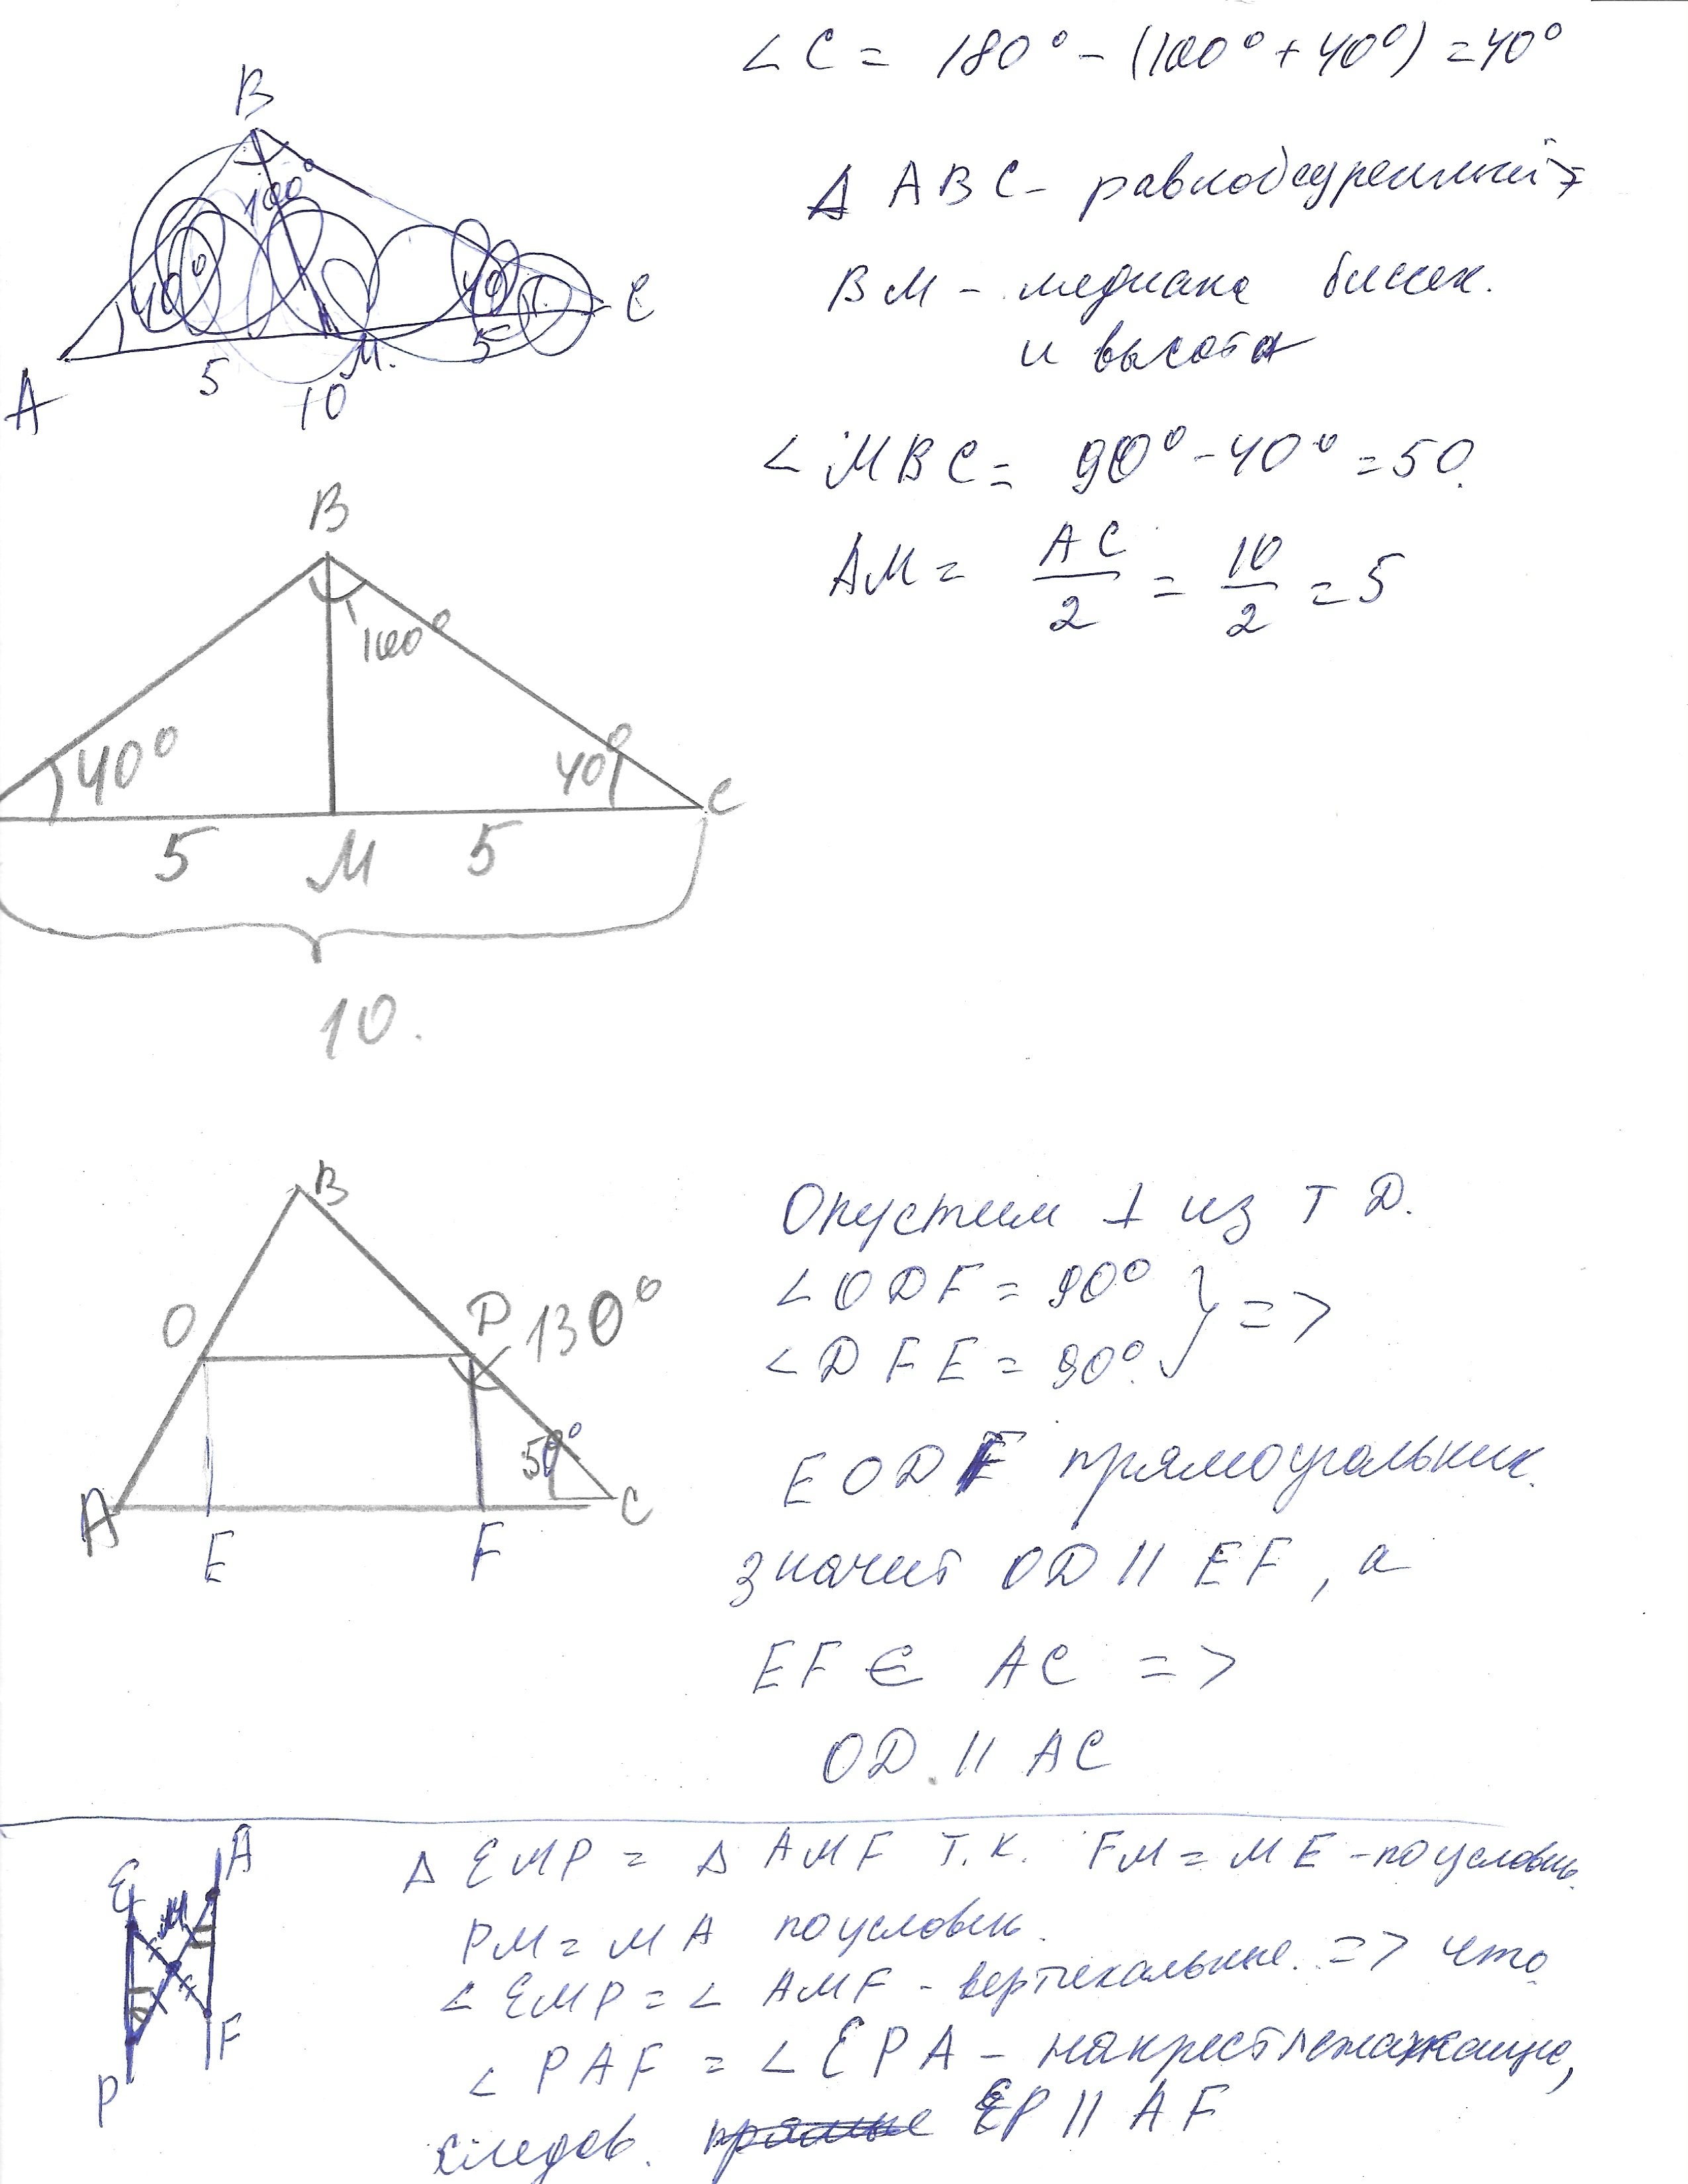 ∠C = 180° - (100° + 40°) = 40°
B
100°
40°
40
C
A
5
M.
5
10
Δ ABC - равнобедренный =>
BM - медиана биссек.
и высота
∠MBC = 90° - 40° = 50.
AM = AC/2 = 10/2 = 5
B
100°
40°
40°
C
5
M
5
10.
B
O
D
130°
50°
A
C
E
F
Опустим ⊥ из т D.
∠ODF = 90° } =>
∠DFE = 90°.
EODF прямоугольник.
значит OD || EF, а
EF ∈ AC =>
OD. || AC
E
A
M
F
P
Δ EMP = Δ AMF т.к. FM = ME - по условию.
PM = MA по условию.
∠EMP = ∠AMF - вертикальные. => что
∠PAF = ∠EPA - накрест лежащие,
следов. прямые EP || AF